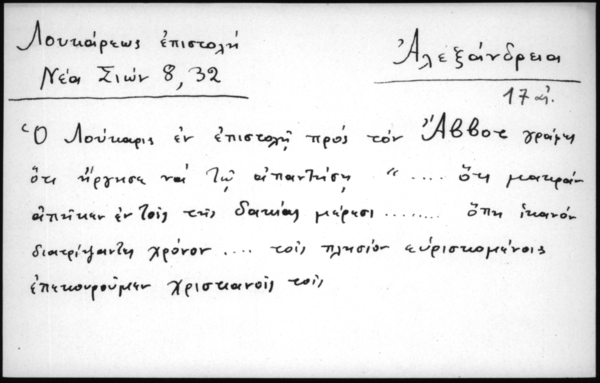 Λουκάρεως ἐπιστολή
Νέα Σιών 8, 32
Ἀλεξάνδρεια
17 αἰ.
Ὁ Λούκαρις ἐν ἐπιστολῇ πρός τόν Ἄββοτ γράφει
ὅτι ἤργησε νά τῷ ἀπαντήσῃ " .... ὅτι μακράν
ἀπῆμεν ἐν τοῖς τῆς Δακίας μέρεσι ........ ὅπῃ ἱκανόν
διατρίψαντι χρόνον .... τοῖς πλησίον εὑρισκομένοις
ἐπεκουροῦμεν χριστιανοῖς τοῖς